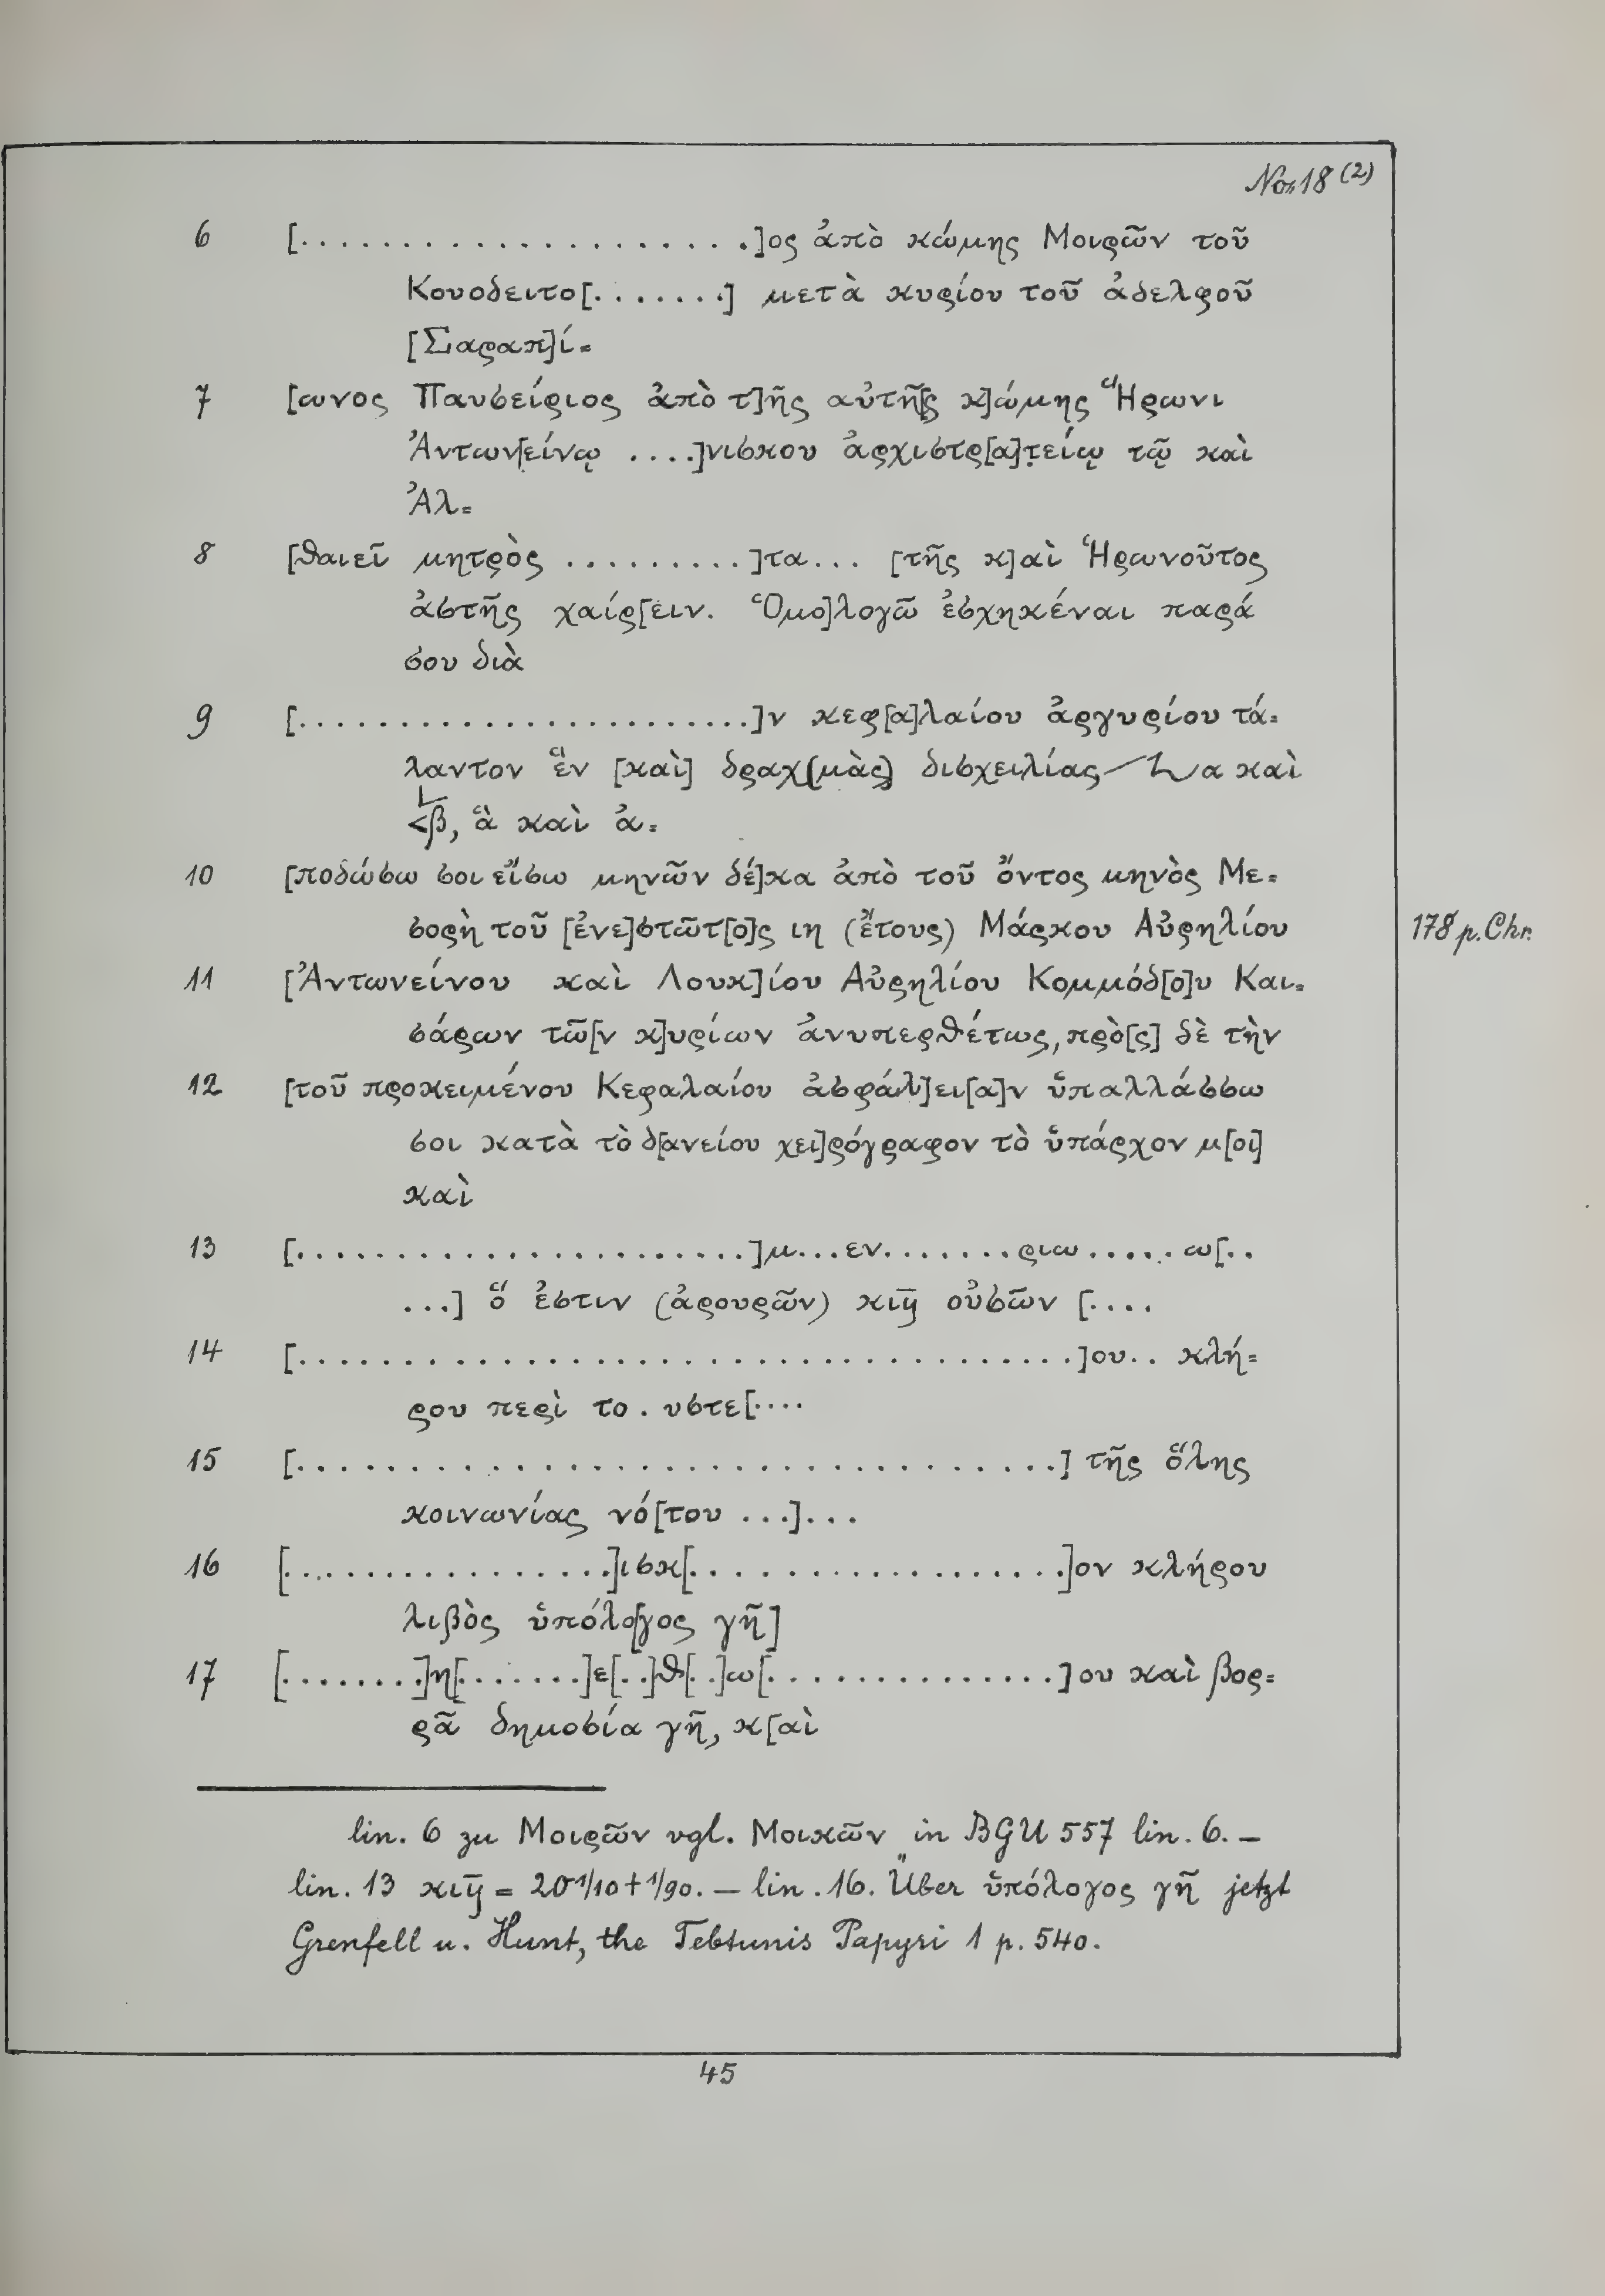 No. 18 (2)
6 [. . . . . . . . . . . . . . . . . . .]ος ἀπὸ κώμης Μοιρῶν τοῦ
Κουοδειτο[. . . . . . .] μετὰ κυρίου τοῦ ἀδελφοῦ
[Σαραπ]ί=
7 [ωνος Παυσείριος ἀπὸ τ]ῆς αὐτῆ[ς κ]ώμης Ἥρωνι
Ἀντων[είνῳ . . . .]νισκου ἀρχιστρ[α]τείῳ τῷ καὶ
Ἀλ=
8 [θαιεῖ μητρὸς . . . . . . . . .]τα... [τῆς κ]αὶ Ἡρωνοῦτος
ἀστῆς χαίρ[ειν. Ὁμο]λογῶ ἐσχηκέναι παρά
σου διὰ
9 [. . . . . . . . . . . . . . . . . . . . . .]ν κεφ[α]λαίου ἀργυρίου τά=
λαντον ἓν [καὶ] δραχ(μὰς) δισχειλίας α καὶ
β, ἃ καὶ ἀ=
10 [ποδώσω σοι εἴσω μηνῶν δέ]κα ἀπὸ τοῦ ὄντος μηνὸς Με=
σορὴ τοῦ [ἐνε]στῶτ[ο]ς ιη (ἔτους) Μάρκου Αὐρηλίου
178 p. Chr.
11 [Ἀντωνείνου καὶ Λουκ]ίου Αὐρηλίου Κομμόδ[ο]υ Και=
σάρων τῶ[ν κ]υρίων ἀνυπερθέτως, πρὸ[ς] δὲ τὴν
12 [τοῦ προκειμένου Κεφαλαίου ἀσφάλ]ει[α]ν ὑπαλλάσσω
σοι κατὰ τὸ δ[ανείου χει]ρόγραφον τὸ ὑπάρχον μ[οι]
καὶ
13 [. . . . . . . . . . . . . . . . . . . . . .]μ...εν.......ριω......ω[..
...] ὅ ἐστιν (ἀρουρῶν) κιϥ οὐσῶν [....
14 [. . . . . . . . . . . . . . . . . . . . . . . . . . . . . .]ου.. κλή=
ρου περὶ το. υστε[....
15 [. . . . . . . . . . . . . . . . . . . . . . . . . . . . . .] τῆς ὅλης
κοινωνίας νό[του ...]...
16 [. . . . . . . . . . . . . . . .]ισκ[. . . . . . . . . . . . . . . . . .]ον κλήρου
λιβὸς ὑπόλο[γος γῆ]
17 [. . . . . . . .]η[. . . . . . .]ε[..]θ[..]ω[. . . . . . . . . . . . . .]ου καὶ βορ=
ρᾶ δημοσία γῆ, κ[αὶ
lin. 6 zu Μοιρῶν vgl. Μοικῶν in BGU 557 lin. 6. —
lin. 13 κιϥ = 20 1/10 + 1/90. — lin. 16. Über ὑπόλογος γῆ jetzt
Grenfell u. Hunt, the Tebtunis Papyri 1 p. 540.
45